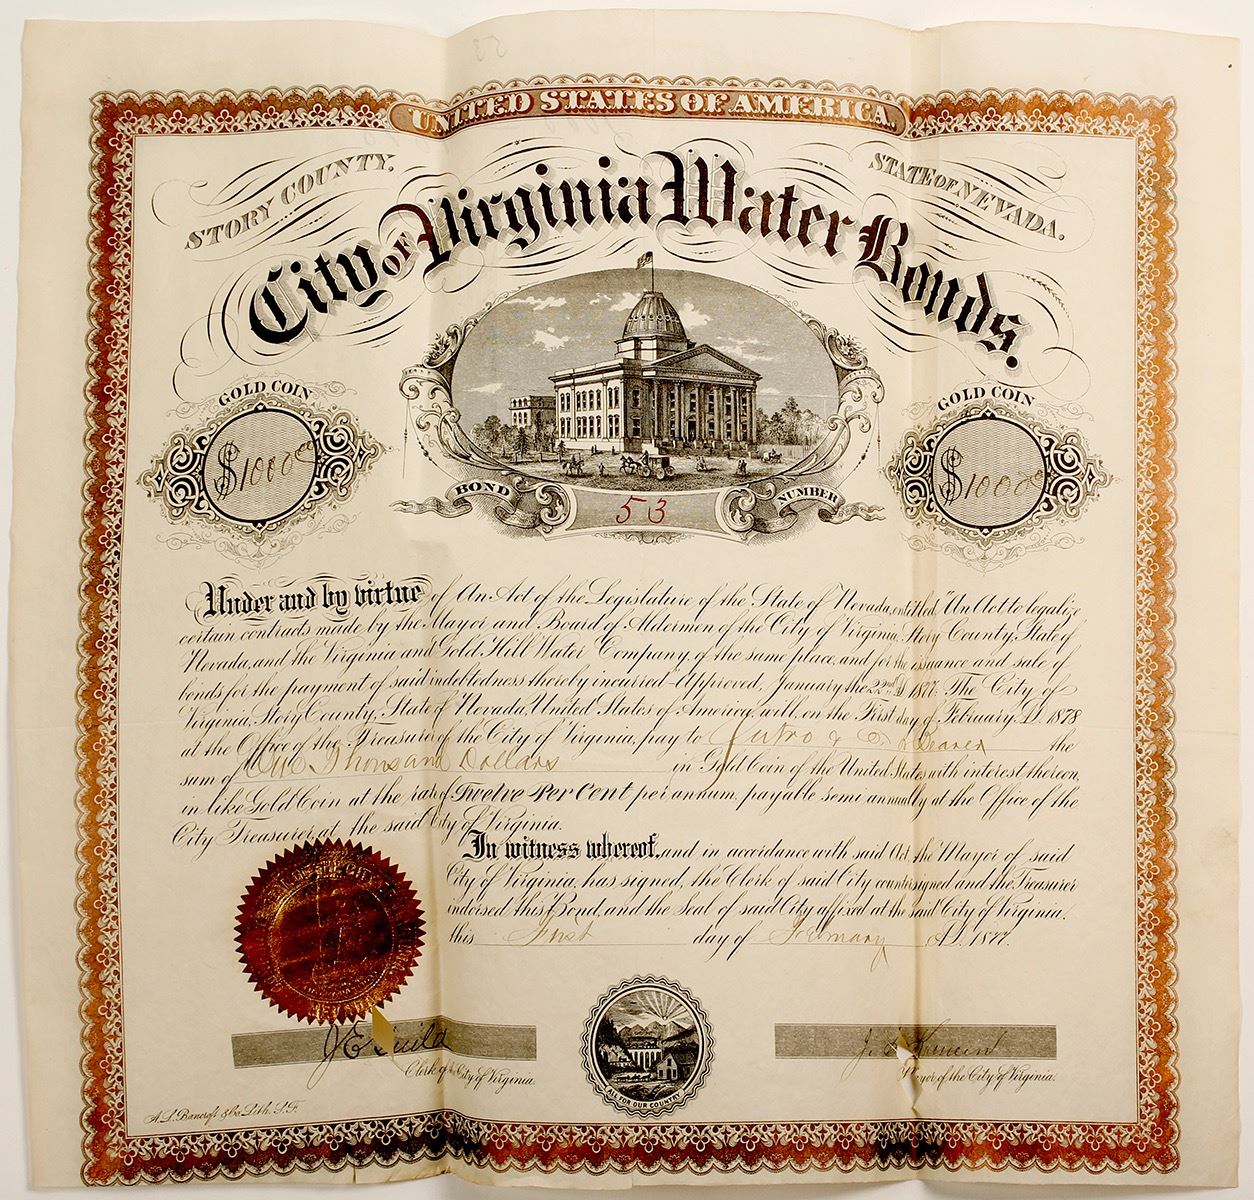 UNITED STATES OF AMERICA.
STORY COUNTY.
STATE OF NEVADA.
City of Virginia Water Bonds.
GOLD COIN
GOLD COIN
$1000 00
$1000 00
BOND
53
NUMBER
Under and by virtue of An Act of the Legislature of the State of Nevada, entitled, "An Act to legalize
certain contracts made by the Mayor and Board of Aldermen of the City of Virginia, Story County, State of
Nevada, and the Virginia and Gold Hill Water Company, of the same place, and for the issuance and sale of
bonds for the payment of said indebtedness thereby incurred" Approved, January the 22nd A.D 1877. The City of
Virginia, Story County, State of Nevada, United States of America, will, on the First day of February A.D. 1878
at the Office of the Treasurer of the City of Virginia, pay to Sutro & Co or Bearer the
sum of One Thousand Dollars in Gold Coin of the United States with interest thereon,
in like Gold Coin at the rate of Twelve Per Cent per annum, payable semi annually at the Office of the
City Treasurer, at the said City of Virginia.
In witness whereof, and in accordance with said Act, the Mayor of said
City of Virginia, has signed, the Clerk of said City countersigned and the Treasurer
indorsed this Bond, and the Seal of said City affixed at the said City of Virginia,
this First day of February A.D. 1877.
J E Guild
Clerk of the City of Virginia.
ALL FOR OUR COUNTRY
Mayor of the City of Virginia.
A. L. Bancroft & Co. Lith. S. F.